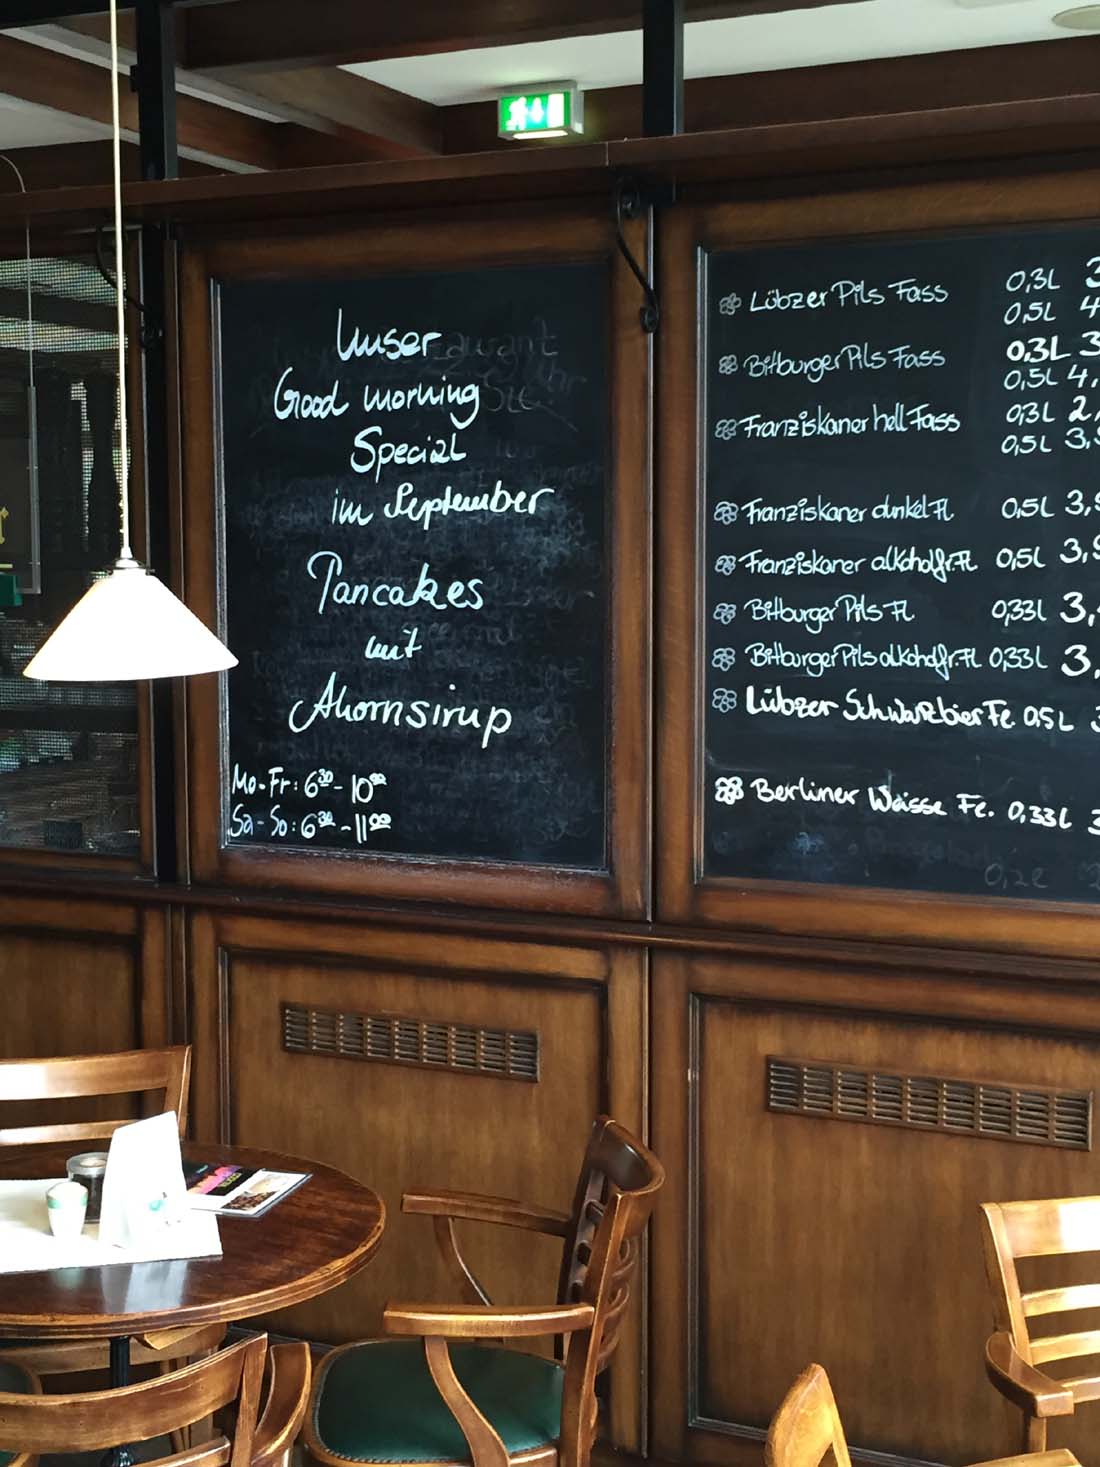 Unser
Good morning
Special
im September
Pancakes
mit
Ahornsirup
Mo-Fr: 6³⁰ - 10⁰⁰
Sa - So: 6³⁰ - 11⁰⁰
Lübzer Pils Fass 0,3L 3
0,5L 4
Bitburger Pils Fass 0,3L 3
0,5L 4,
Franziskaner hell Fass 0,3L 2,
0,5L 3,9
Franziskaner dunkel Fl 0,5L 3,9
Franziskaner alkoholfr. Fl 0,5L 3,9
Bitburger Pils Fl 0,33l 3,
Bitburger Pils alkoholfr. Fl 0,33l 3,
Lübzer Schwarzbier Fe. 0,5L 3
Berliner Weisse Fe. 0,33l 3
0,2l